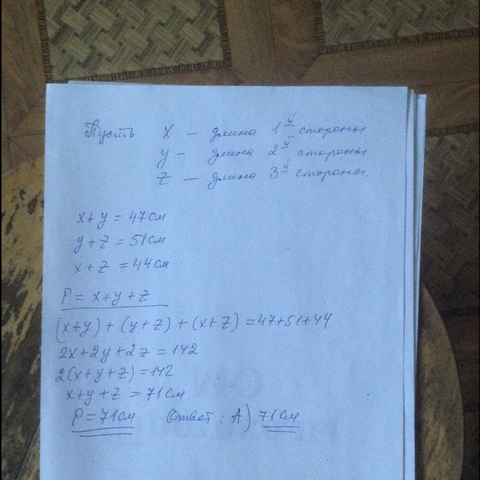 Пусть X — длина 1й стороны
y — длина 2й стороны
z — длина 3й стороны.
x+y = 47см
y+z = 51см
x+z = 44см
P = x+y+z
(x+y) + (y+z) + (x+z) = 47+51+44
2x+2y+2z = 142
2(x+y+z) = 142
x+y+z = 71см
P = 71см Ответ: А) 71см